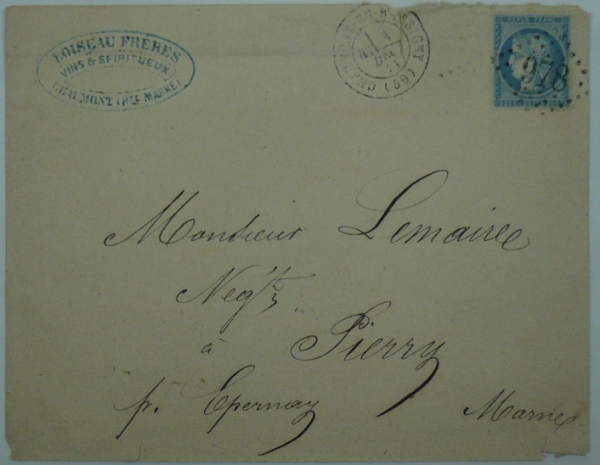 LOISEAU FRERES
VINS & SPIRITUEUX
CHAUMONT (HTE MARNE)
(59)
REPUB. FRANC.
978
Monsieur Lemaire
Negt
à Pierry
pr. Epernay Marne